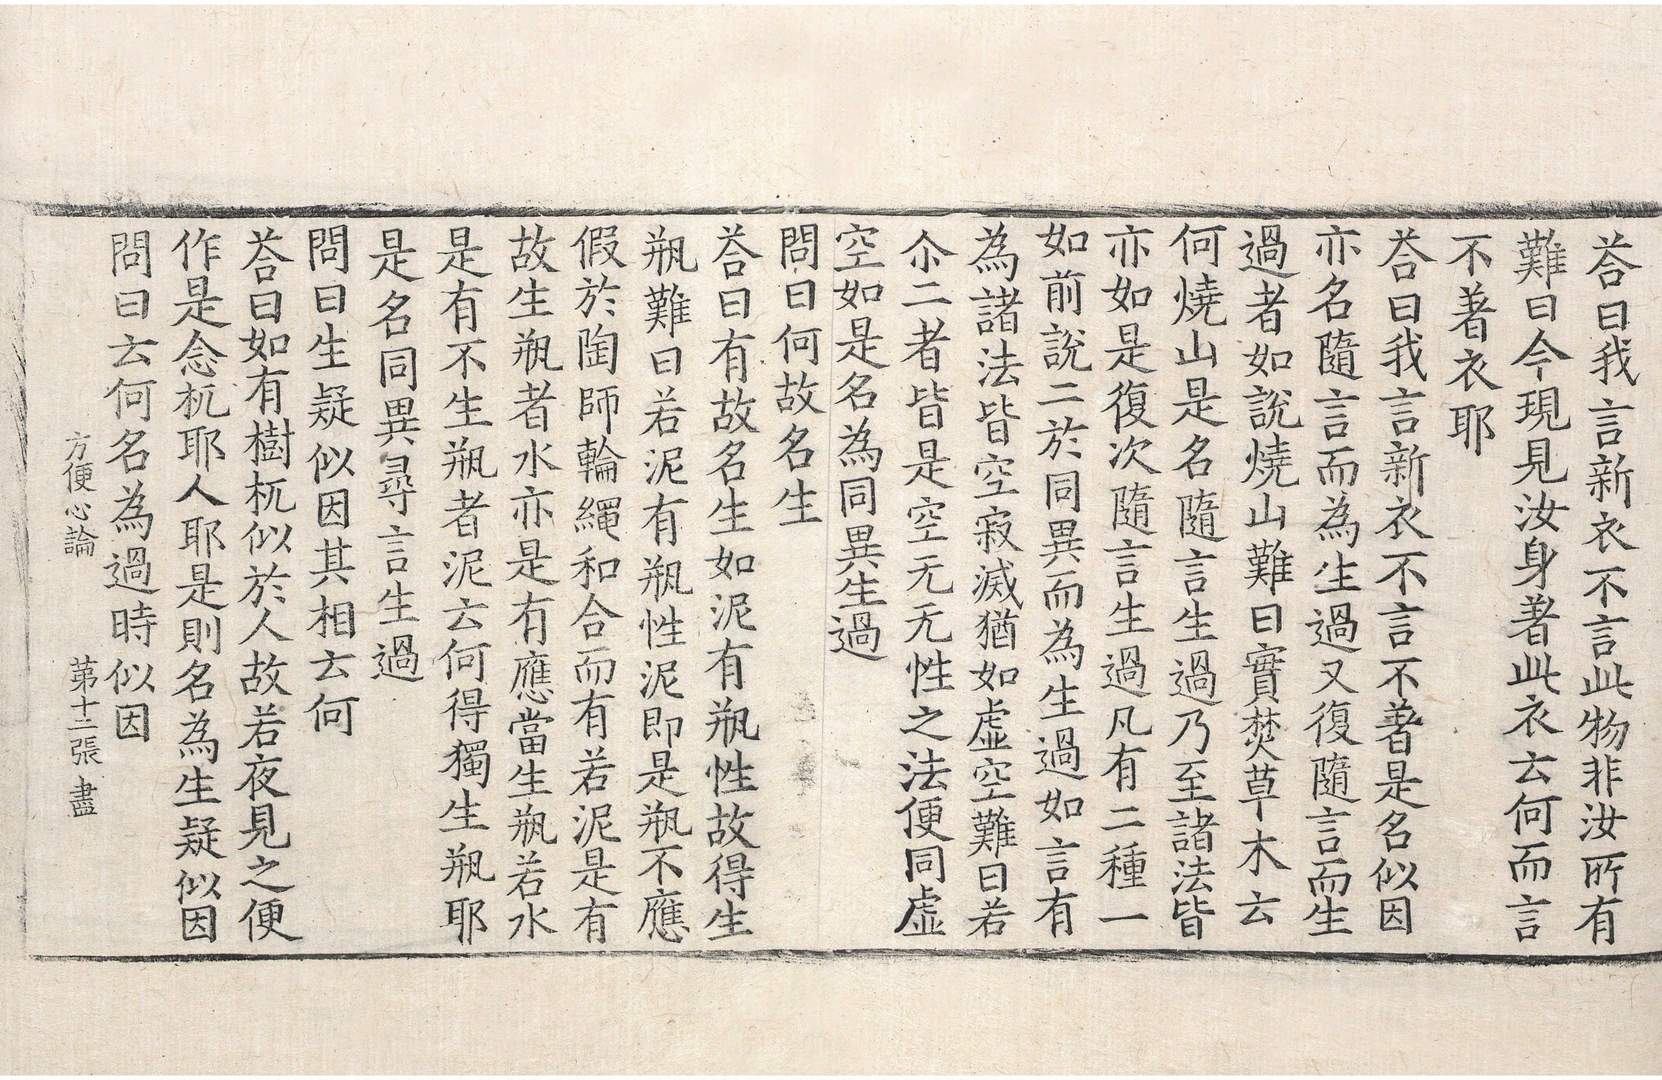 荅曰我言新衣不言此物非汝所有
難曰今現見汝身著此衣云何而言
不著衣耶
荅曰我言新衣不言不著是名似因
亦名隨言而為生過又復隨言而生
過者如說燒山難曰實焚草木云
何燒山是名隨言生過乃至諸法皆
亦如是復次隨言生過凡有二種一
如前說二於同異而為生過如言有
為諸法皆空寂滅猶如虛空難曰若
尒二者皆是空无无性之法便同虛
空如是名為同異生過
問曰何故名生
荅曰有故名生如泥有瓶性故得生
瓶難曰若泥有瓶性泥即是瓶不應
假於陶師輪繩和合而有若泥是有
故生瓶者水亦是有應當生瓶若水
是有不生瓶者泥云何得獨生瓶耶
是名同異尋言生過
問曰生疑似因其相云何
荅曰如有樹杌似於人故若夜見之便
作是念杌耶人耶是則名為生疑似因
問曰云何名為過時似因
方便心論　第十二張　盡